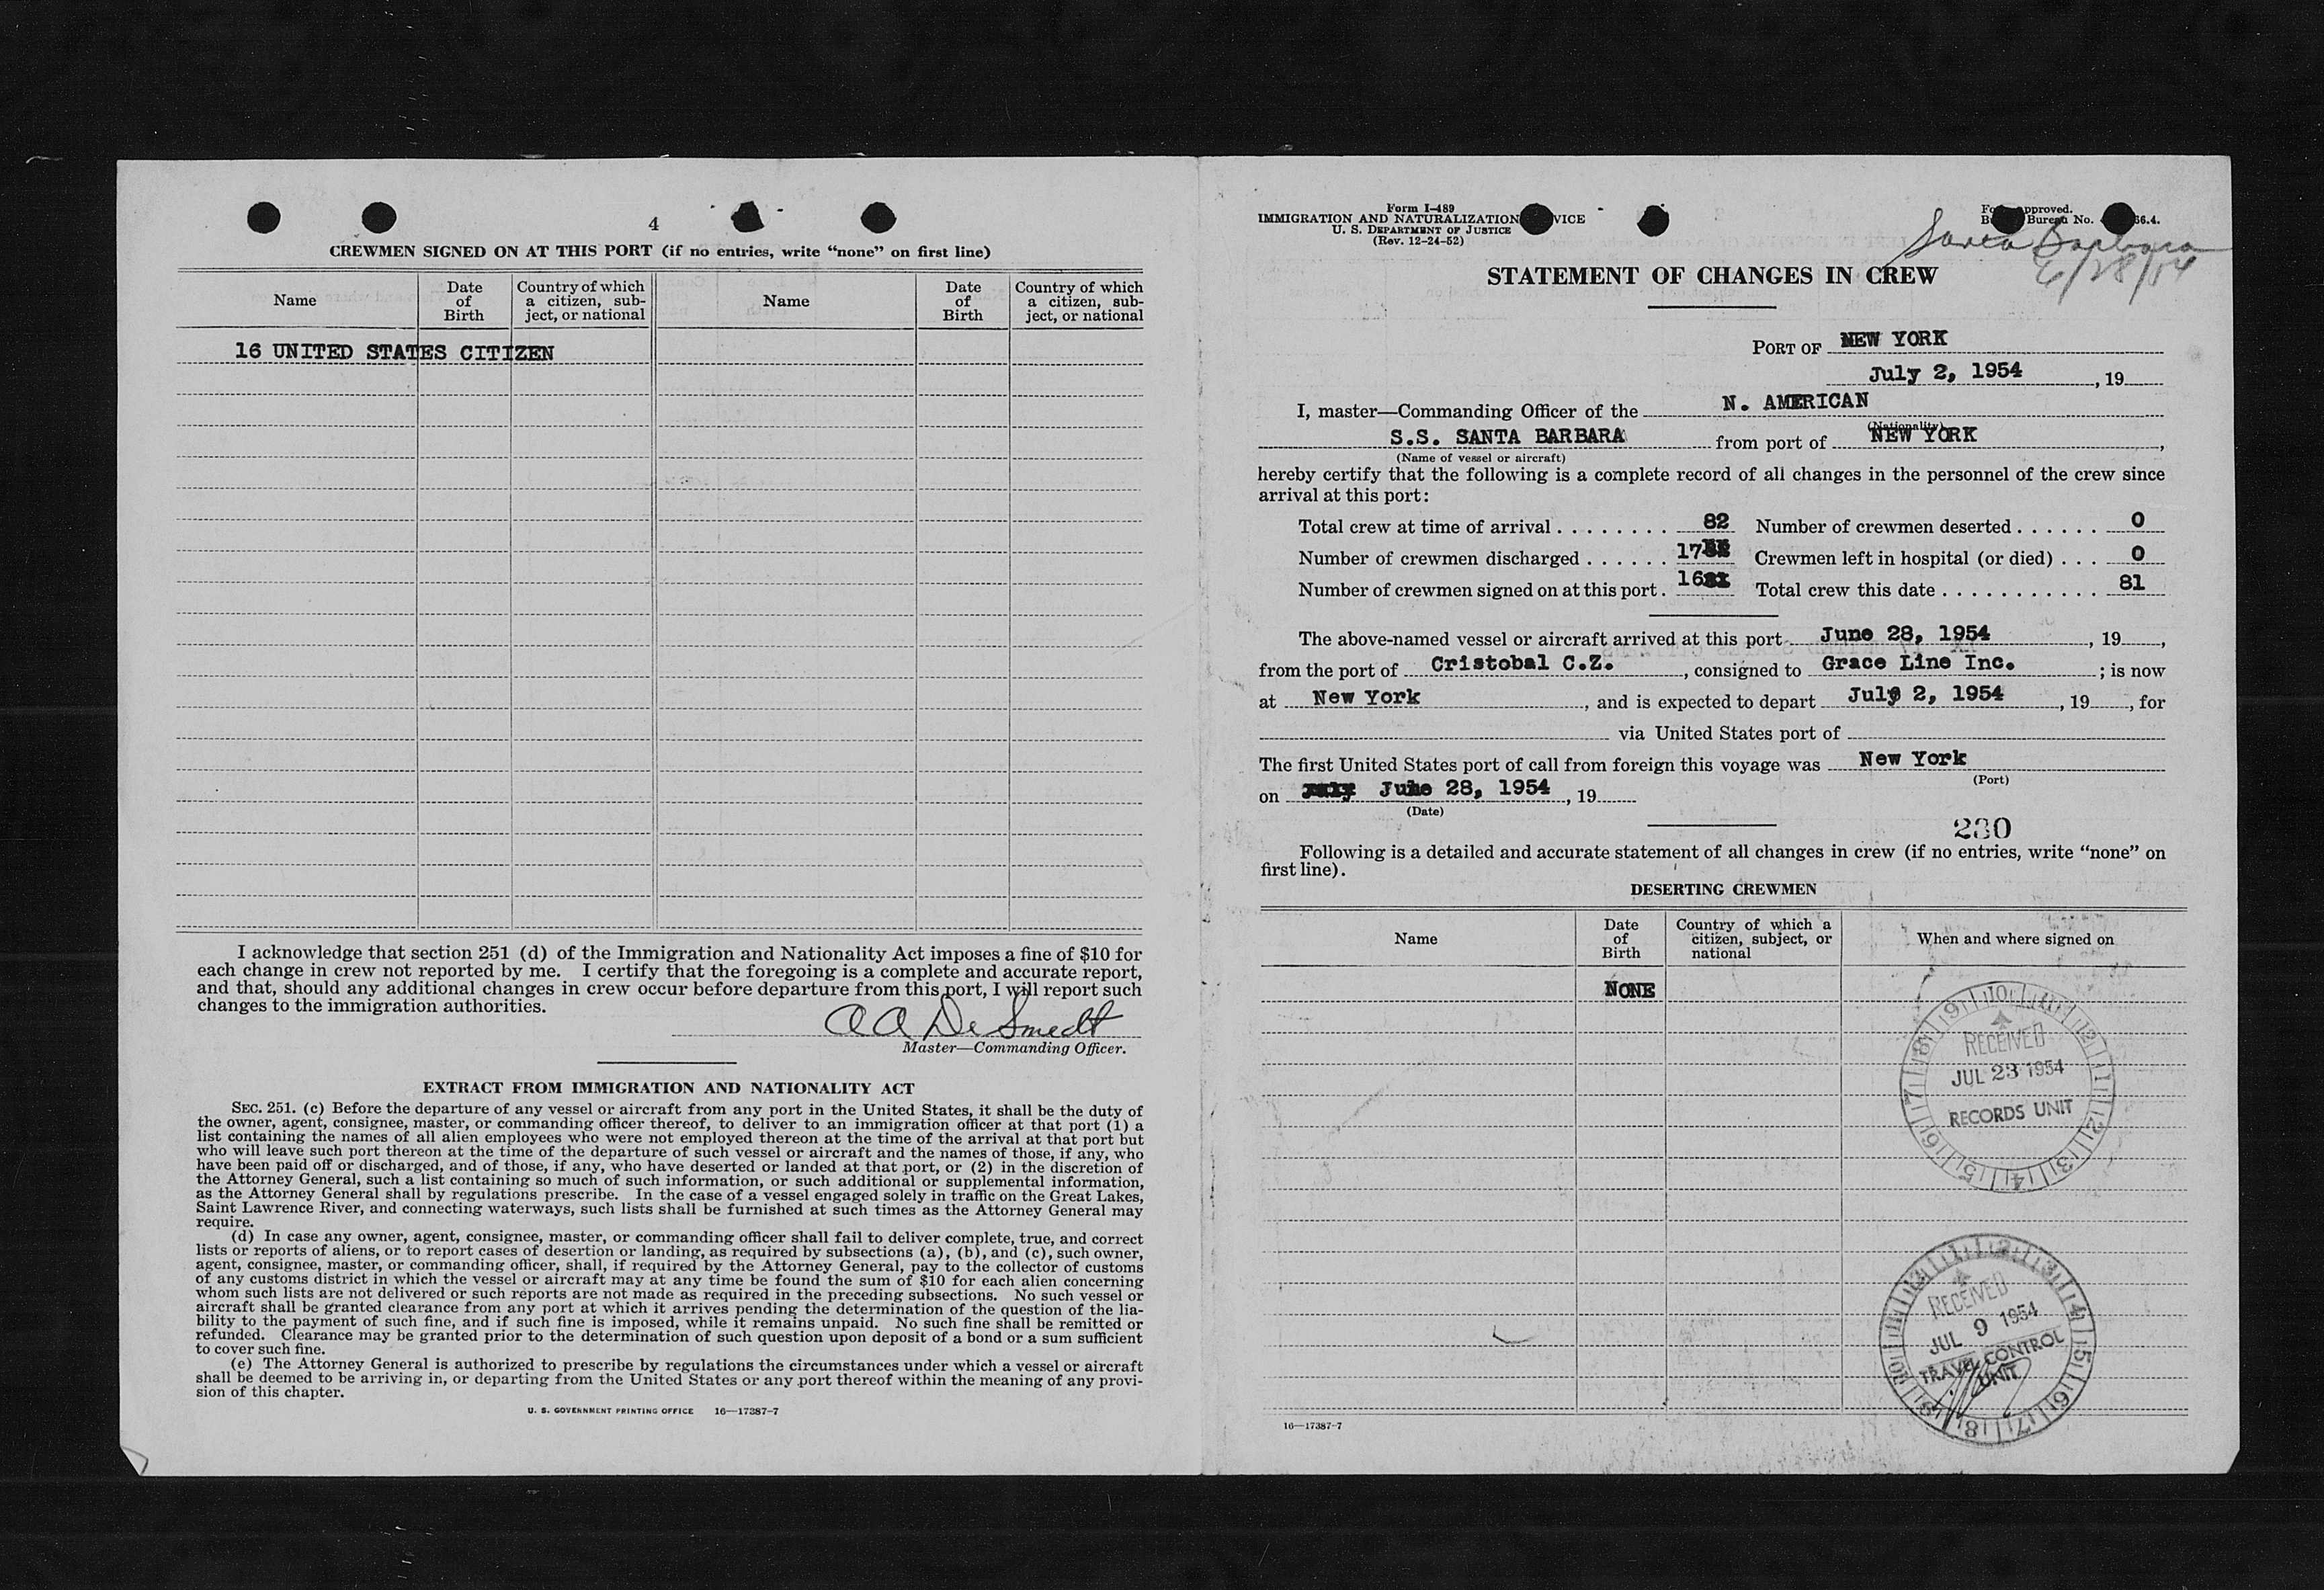 4
CREWMEN SIGNED ON AT THIS PORT (if no entries, write “none” on first line)
Name
Date of Birth
Country of which a citizen, sub-
ject, or national
Name
Date of Birth
Country of which a citizen, sub-
ject, or national
16 UNITED STATES CITIZEN
I acknowledge that section 251 (d) of the Immigration and Nationality Act imposes a fine of $10 for
each change in crew not reported by me. I certify that the foregoing is a complete and accurate report,
and that, should any additional changes in crew occur before departure from this port, I will report such
changes to the immigration authorities.
A A De Smedt
Master—Commanding Officer.
EXTRACT FROM IMMIGRATION AND NATIONALITY ACT
SEC. 251. (c) Before the departure of any vessel or aircraft from any port in the United States, it shall be the duty of
the owner, agent, consignee, master, or commanding officer thereof, to deliver to an immigration officer at that port (1) a
list containing the names of all alien employees who were not employed thereon at the time of the arrival at that port but
who will leave such port thereon at the time of the departure of such vessel or aircraft and the names of those, if any, who
have been paid off or discharged, and of those, if any, who have deserted or landed at that port, or (2) in the discretion of
the Attorney General, such a list containing so much of such information, or such additional or supplemental information,
as the Attorney General shall by regulations prescribe. In the case of a vessel engaged solely in traffic on the Great Lakes,
Saint Lawrence River, and connecting waterways, such lists shall be furnished at such times as the Attorney General may
require.
(d) In case any owner, agent, consignee, master, or commanding officer shall fail to deliver complete, true, and correct
lists or reports of aliens, or to report cases of desertion or landing, as required by subsections (a), (b), and (c), such owner,
agent, consignee, master, or commanding officer, shall, if required by the Attorney General, pay to the collector of customs
of any customs district in which the vessel or aircraft may at any time be found the sum of $10 for each alien concerning
whom such lists are not delivered or such reports are not made as required in the preceding subsections. No such vessel or
aircraft shall be granted clearance from any port at which it arrives pending the determination of the question of the lia-
bility to the payment of such fine, and if such fine is imposed, while it remains unpaid. No such fine shall be remitted or
refunded. Clearance may be granted prior to the determination of such question upon deposit of a bond or a sum sufficient
to cover such fine.
(e) The Attorney General is authorized to prescribe by regulations the circumstances under which a vessel or aircraft
shall be deemed to be arriving in, or departing from the United States or any port thereof within the meaning of any provi-
sion of this chapter.
U. S. GOVERNMENT PRINTING OFFICE 16—17387-7
Form I-489
IMMIGRATION AND NATURALIZATION VICE
U. S. DEPARTMENT OF JUSTICE
(Rev. 12-24-52)
pproved.
Bureau No. 66.4.
Santa Barbara
6/28/54
STATEMENT OF CHANGES IN CREW
PORT OF NEW YORK
July 2, 1954, 19
I, master—Commanding Officer of the N. AMERICAN
(Nationality)
S.S. SANTA BARBARA from port of NEW YORK,
(Name of vessel or aircraft)
hereby certify that the following is a complete record of all changes in the personnel of the crew since
arrival at this port:
Total crew at time of arrival . . . . . . . . 82 Number of crewmen deserted . . . . . . 0
Number of crewmen discharged . . . . . . 17 Crewmen left in hospital (or died) . . . 0
Number of crewmen signed on at this port . 16 Total crew this date . . . . . . . . . . . 81
The above-named vessel or aircraft arrived at this port June 28, 1954, 19,
from the port of Cristobal C.Z., consigned to Grace Line Inc.; is now
at New York, and is expected to depart July 2, 1954, 19, for
via United States port of
The first United States port of call from foreign this voyage was New York
(Port)
on June 28, 1954, 19
(Date)
230
Following is a detailed and accurate statement of all changes in crew (if no entries, write “none” on
first line).
DESERTING CREWMEN
Name
Date of Birth
Country of which a citizen, subject, or national
When and where signed on
NONE
RECEIVED
JUL 23 1954
RECORDS UNIT
RECEIVED
JUL 9 1954
TRAVEL CONTROL
UNIT
16—17387-7